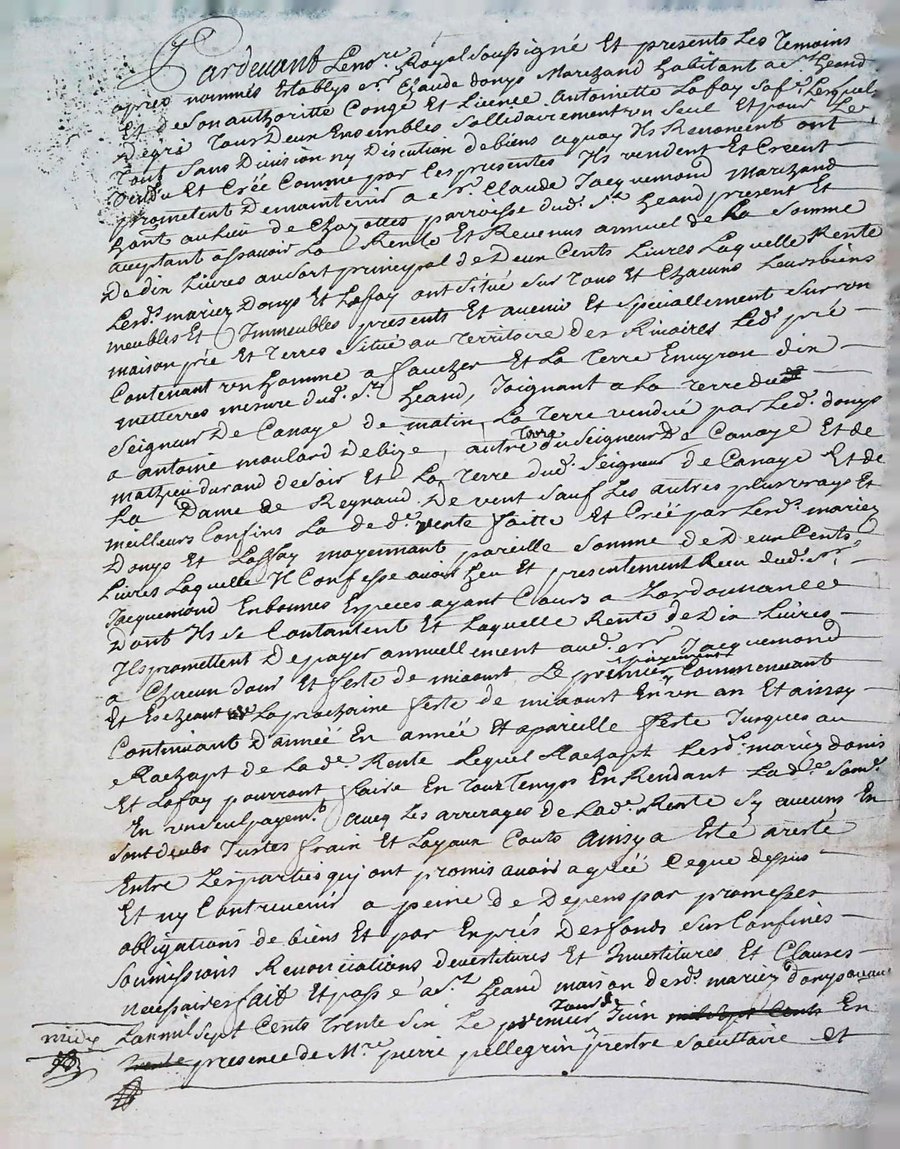 Pardevant Lenore Royal soussigné Et presents Les Temoins
apres nommes Etablys er sr Claude donys Marchand habitant a st heand
Et de son authoritte Congé Et Licence Antoinette Laffay sa fe Lesquels
Degré Tous Deux Ensembles sollidairement un seul Et pour Le
Tout sans Division ny Discution de biens aquoy Ils Renoncent ont
vendu Et Créé Comme par Ces presentes Ils vendent Et Creent
promettent De maintenir a sr Claude Jacquemond Marchand
hant au Lieu de Chazottes parroisse dud. st heand present Et
acceptant assavoir La Rente Et Revenus annuel de La somme
De dix Livres au sort principal de Deux Cents Livres Laquelle Rente
Lesd. mariez Donys Et Laffay ont situé sur Tous Et Chacuns Leurs biens
meubles Et Immeubles presents Et avenir Et speciallement sur un
maison pré Et Terres situé au Territoire des Rivoires Led. pré
Contenant un homme a faucher Et La Terre Environ dix
metterres mesure dud. st heand, Joignant a La terre du
Seigneur De Canaye de matin, La terre vendué par Led. donys
a antoine moulard de bize, autre Terre du Seigneur De Canaye Et de
mathieu durand de soir Et La Terre dud. Seigneur de Canaye Et de
La Dame de Reynaud De vent sauf Les autres plus vrays Et
meilleurs Confins La de de vente faitte Et Créé par Lesd. mariez
Donys Et Laffay moyennant pareille somme de Deux Cents
Livres Laquelle Il Confesse avoir heu Et presentement Receu dud. sr
Jacquemond En bonnes Especes ayant Cours a Lordonnance
Dont Ils se Contantent Et Laquelle Rente de Dix Livres
Ils promettent De payer annuellement aud. sr Jacquemond
a Chacun Jour Et feste de mi aoust Le premier payement Commencant
Et Escheant La prochaine feste de mi aoust En un an Et ainssy
Continuant D'année En année Et apareille feste Jusques au
Rachapt de Lade Rente Lequel Rachapt Lesd. mariez donis
Et Laffay pourront faire En Tout Temps En Rendant Lade som.
En un seul payemt. avec Les arrerages de Lade Rente sy aucuns En
sont deubs Justes frain Et Loyaux Couts Ainsy a Esté aresté
Entre Les parties quy ont promis avoir agréé Ceque dessus
Et ny Contrevenir a peine de Depens par promesses
obligations de biens Et par Exprés Des fonds sur Confinés
Soumissions Renonciations devestitures Et Investitures Et Clauses
necessaires fait Et passé a st heand maison desd. mariez donys
Lan mil sept Cents Trente six Le premier Jour de Juin En
presence de Mre pierre pellegrin prestre societtaire et